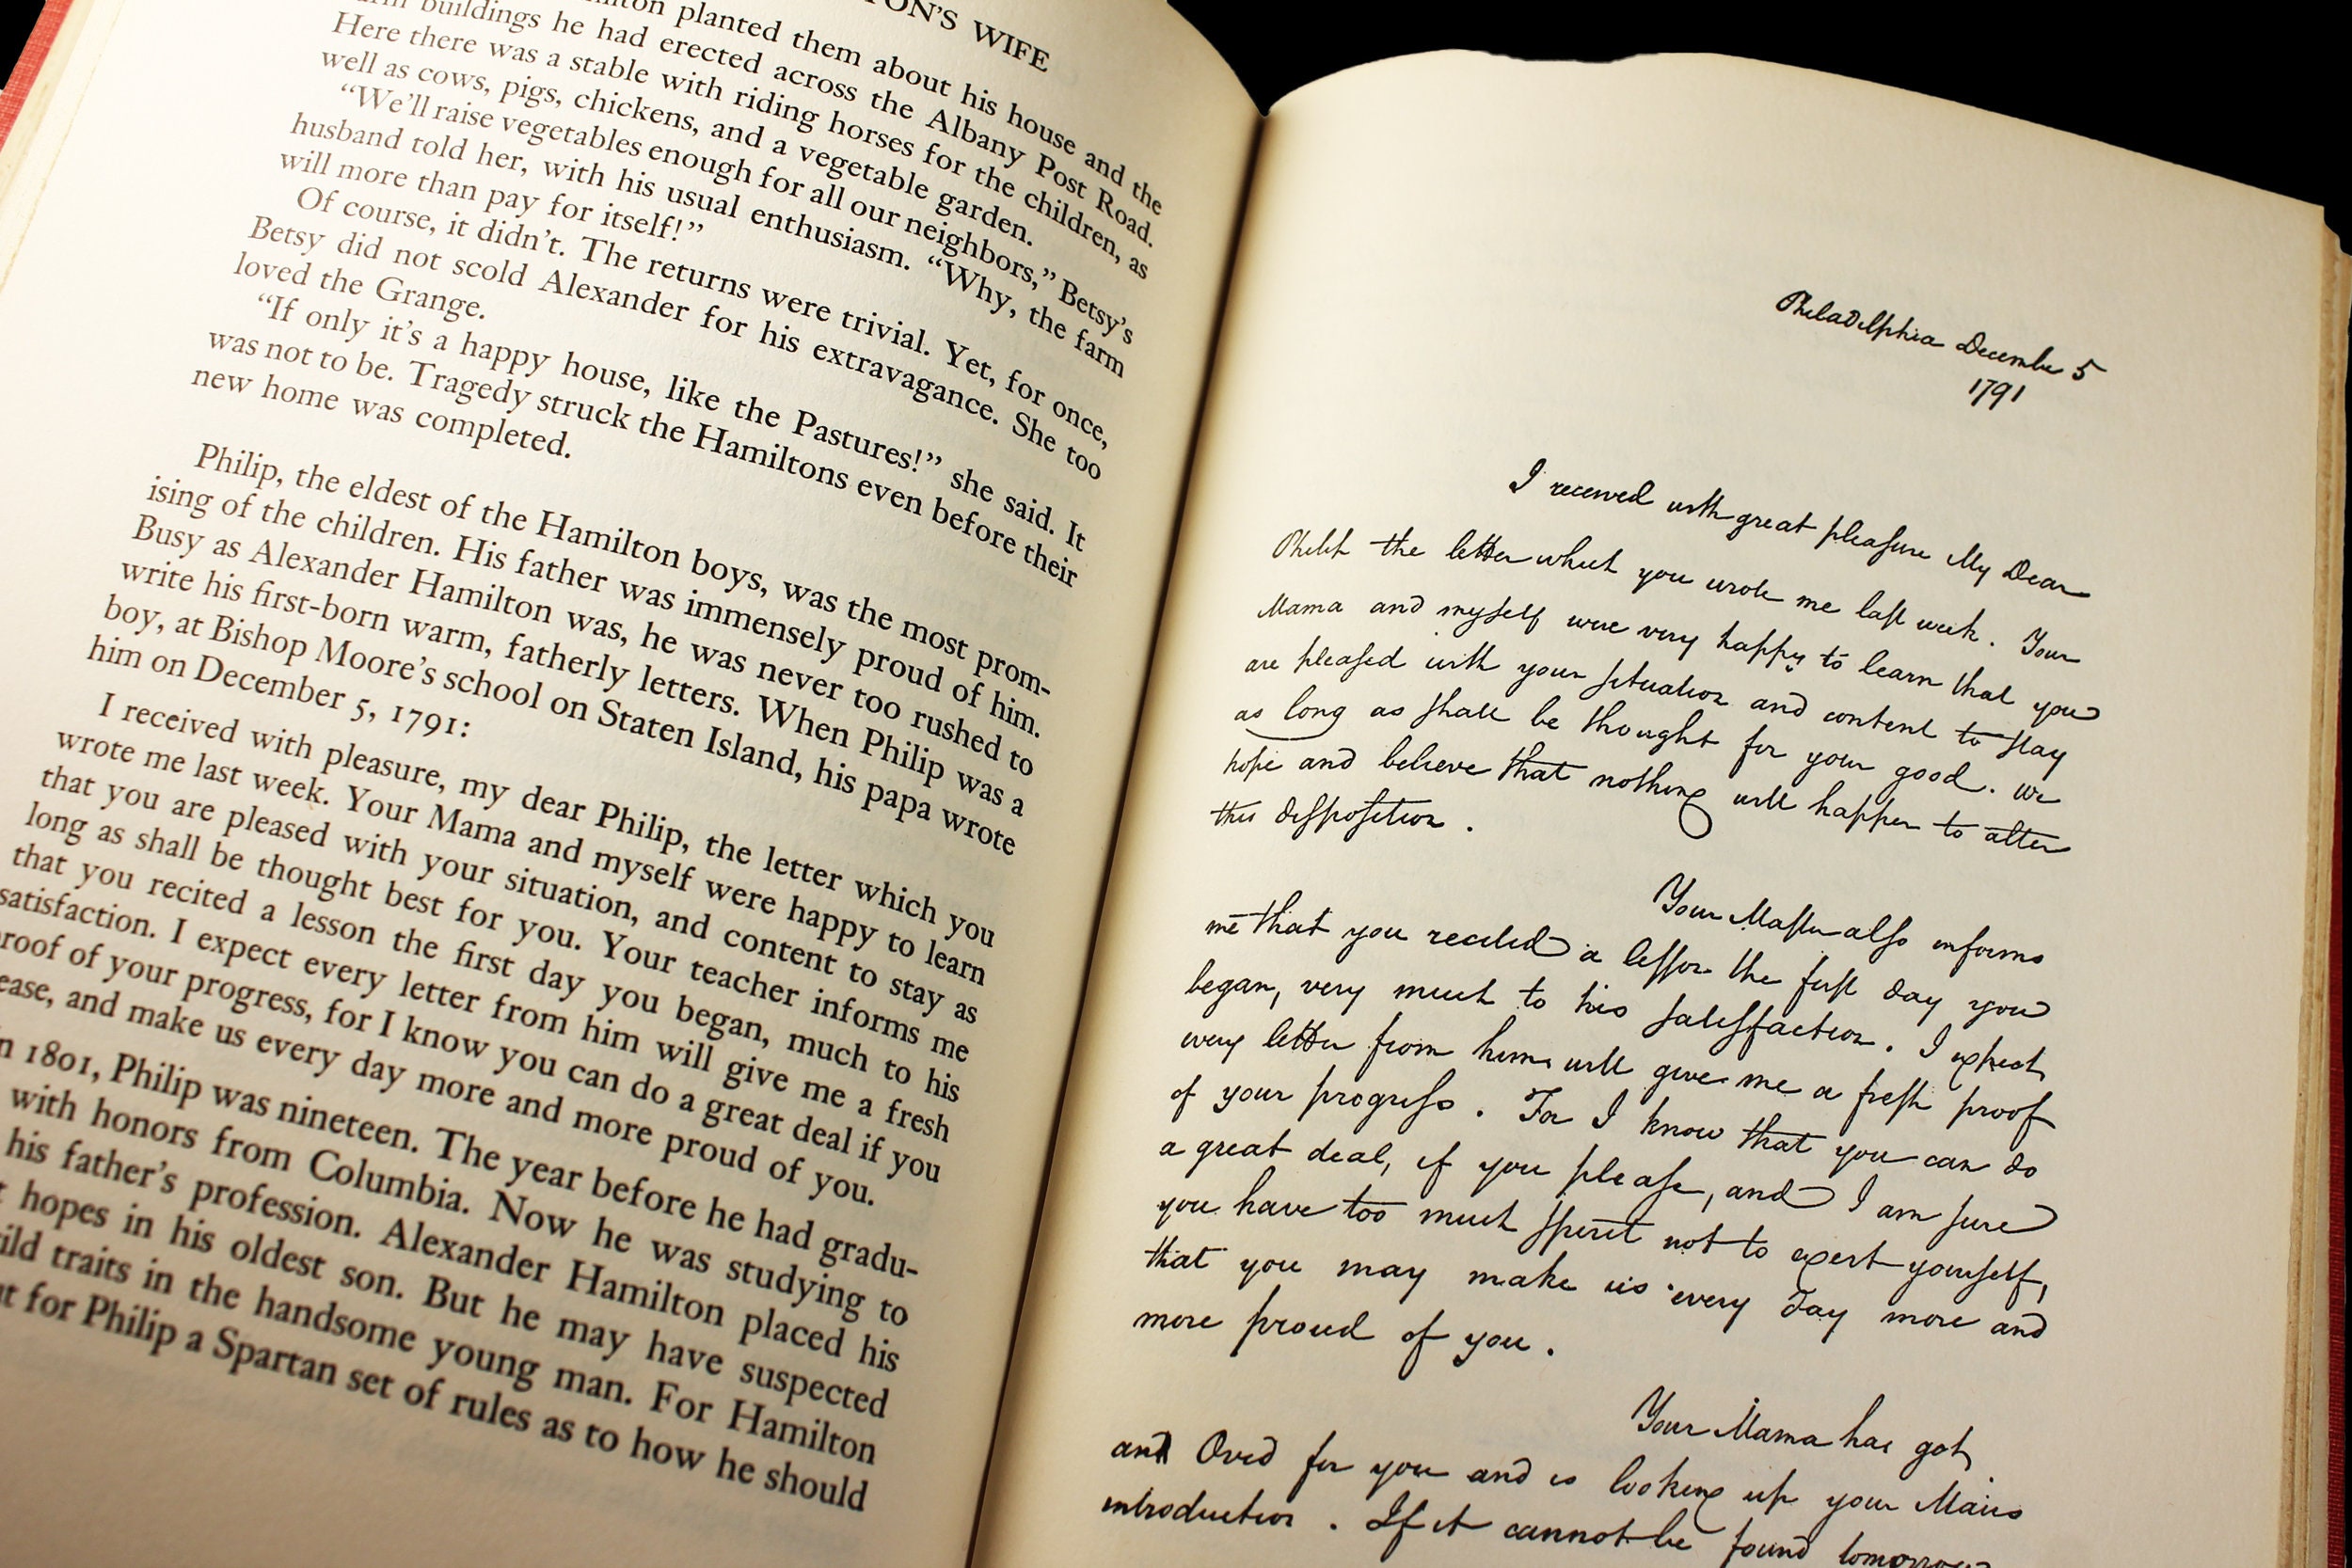 TON'S WIFE
planted them about his house and the
buildings he had erected across the Albany Post Road.
Here there was a stable with riding horses for the children, as
well as cows, pigs, chickens, and a vegetable garden.
“We'll raise vegetables enough for all our neighbors,” Betsy's
husband told her, with his usual enthusiasm. “Why, the farm
will more than pay for itself!”
Of course, it didn't. The returns were trivial. Yet, for once,
Betsy did not scold Alexander for his extravagance. She too
loved the Grange.
“If only it's a happy house, like the Pastures!” she said. It
was not to be. Tragedy struck the Hamiltons even before their
new home was completed.
Philip, the eldest of the Hamilton boys, was the most prom-
ising of the children. His father was immensely proud of him.
Busy as Alexander Hamilton was, he was never too rushed to
write his first-born warm, fatherly letters. When Philip was a
boy, at Bishop Moore's school on Staten Island, his papa wrote
him on December 5, 1791:
I received with pleasure, my dear Philip, the letter which you
wrote me last week. Your Mama and myself were happy to learn
that you are pleased with your situation, and content to stay as
long as shall be thought best for you. Your teacher informs me
that you recited a lesson the first day you began, much to his
satisfaction. I expect every letter from him will give me a fresh
roof of your progress, for I know you can do a great deal if you
ease, and make us every day more and more proud of you.
n 1801, Philip was nineteen. The year before he had gradu-
with honors from Columbia. Now he was studying to
his father's profession. Alexander Hamilton placed his
hopes in his oldest son. But he may have suspected
ild traits in the handsome young man. For Hamilton
t for Philip a Spartan set of rules as to how he should
Philadelphia December 5
1791
I received with great pleasure My Dear
Philip the letter which you wrote me last week. Your
Mama and myself were very happy to learn that you
are pleased with your situation and content to stay
as long as shall be thought for your good. We
hope and believe that nothing will happen to alter
this disposition.
Your Master also informs
me that you recited a lesson the first day you
began, very much to his satisfaction. I expect
every letter from him will give me a fresh proof
of your progress. For I know that you can do
a great deal, if you please, and I am sure
you have too much spirit not to exert yourself,
that you may make us every day more and
more proud of you.
Your Mama has got
an Ovid for you and is looking up your Mairs
introduction. If it cannot be found tomorrow